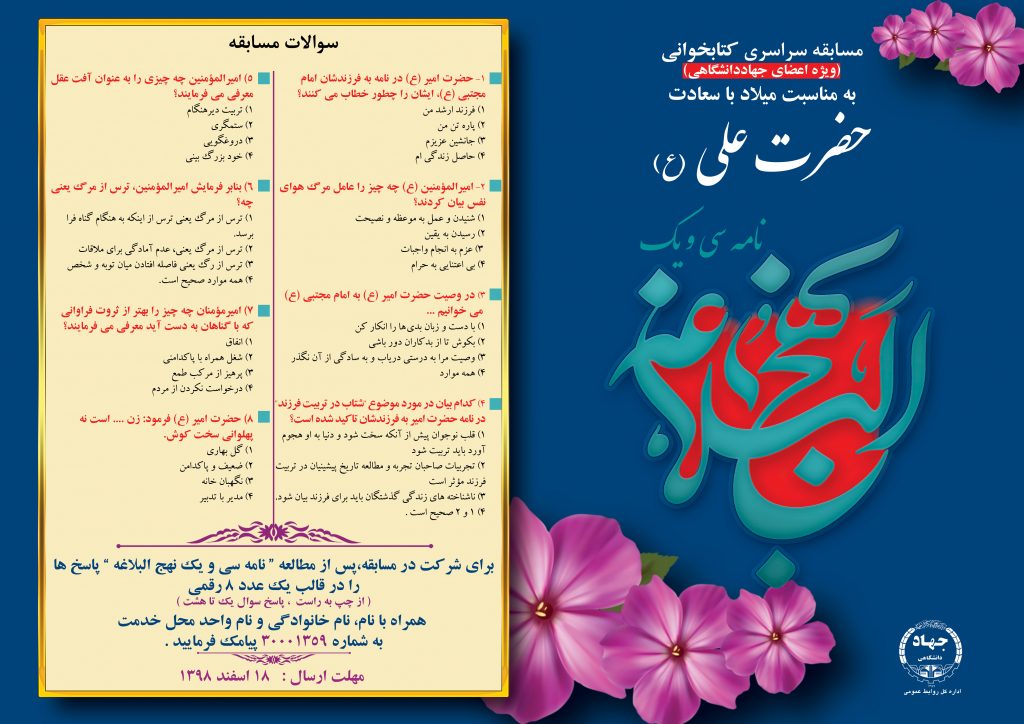 مسابقه سراسری کتابخوانی
(ویژه اعضای جهاددانشگاهی)
به مناسبت میلاد با سعادت
حضرت علی (ع)
نامه سی و یک
نهج البلاغه
جهاد
دانشگاهی
اداره کل روابط عمومی
سوالات مسابقه
۱- حضرت امیر (ع) در نامه به فرزندشان امام
مجتبی (ع)، ایشان را چطور خطاب می کنند؟
۱) فرزند ارشد من
۲) پاره تن من
۳) جانشین عزیزم
۴) حاصل زندگی ام
۲- امیرالمؤمنین (ع) چه چیز را عامل مرگ هوای
نفس بیان کردند؟
۱) شنیدن و عمل به موعظه و نصیحت
۲) رسیدن به یقین
۳) عزم به انجام واجبات
۴) بی اعتنایی به حرام
۳) در وصیت حضرت امیر (ع) به امام مجتبی (ع)
می خوانیم ...
۱) با دست و زبان بدی‌ها را انکار کن
۲) بکوش تا از بدکاران دور باشی
۳) وصیت مرا به درستی دریاب و به سادگی از آن نگذر
۴) همه موارد
۴) کدام بیان در مورد موضوع "شتاب در تربیت فرزند"
در نامه حضرت امیر به فرزندشان تاکید شده است؟
۱) قلب نوجوان پیش از آنکه سخت شود و دنیا به او هجوم
آورد باید تربیت شود
۲) تجربیات صاحبان تجربه و مطالعه تاریخ پیشینیان در تربیت
فرزند مؤثر است
۳) ناشناخته های زندگی گذشتگان باید برای فرزند بیان شود.
۴) ۱ و ۲ صحیح است .
۵) امیرالمؤمنین چه چیزی را به عنوان آفت عقل
معرفی می فرمایند؟
۱) تربیت دیرهنگام
۲) ستمگری
۳) دروغگویی
۴) خود بزرگ بینی
۶) بنابر فرمایش امیرالمؤمنین، ترس از مرگ یعنی
چه؟
۱) ترس از مرگ یعنی ترس از اینکه به هنگام گناه فرا
برسد.
۲) ترس از مرگ یعنی، عدم آمادگی برای ملاقات
۳) ترس از رگ یعنی فاصله افتادن میان توبه و شخص
۴) همه موارد صحیح است.
۷) امیرمؤمنان چه چیز را بهتر از ثروت فراوانی
که با گناهان به دست آید معرفی می فرمایند؟
۱) انفاق
۲) شغل همراه با پاکدامنی
۳) پرهیز از مرکب طمع
۴) درخواست نکردن از مردم
۸) حضرت امیر (ع) فرمود: زن .... است نه
پهلوانی سخت کوش.
۱) گل بهاری
۲) ضعیف و پاکدامن
۳) نگهبان خانه
۴) مدیر با تدبیر
برای شرکت در مسابقه،پس از مطالعه " نامه سی و یک نهج البلاغه " پاسخ ها
را در قالب یک عدد ۸ رقمی
( از چپ به راست ، پاسخ سوال یک تا هشت )
همراه با نام، نام خانوادگی و نام واحد محل خدمت
به شماره ۳۰۰۰۱۳۵۹ پیامک فرمایید .
مهلت ارسال : ۱۸ اسفند ۱۳۹۸